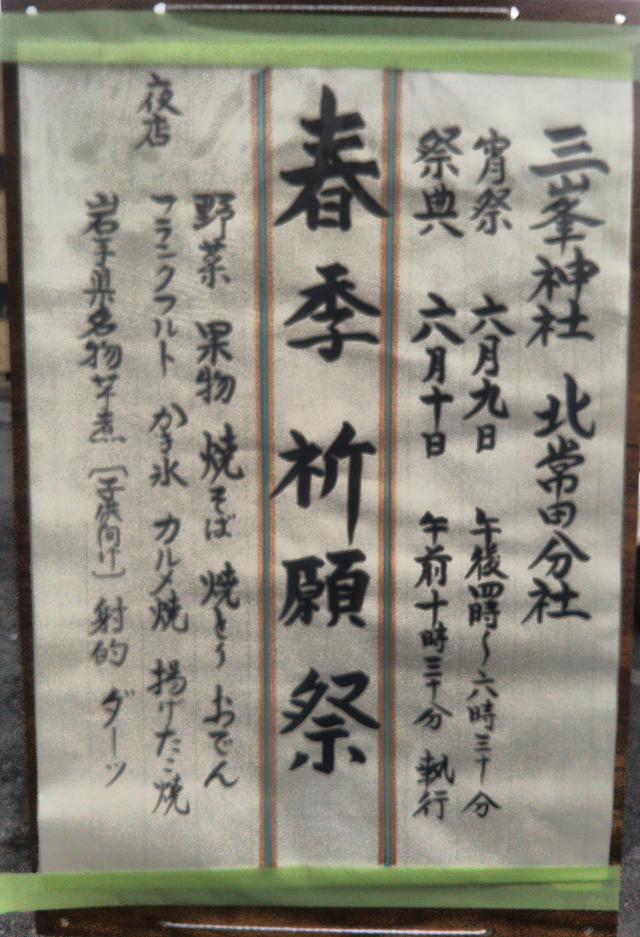 三峯神社 北常田分社
宵祭 六月九日 午後四時～六時三十分
祭典 六月十日 午前十時三十分 執行
春季祈願祭
夜店
野菜 果物 焼そば 焼とり おでん
フランクフルト かき氷 カルメ焼 揚げたこ焼
岩手県名物芋煮 〔子供向け〕 射的 ダーツ